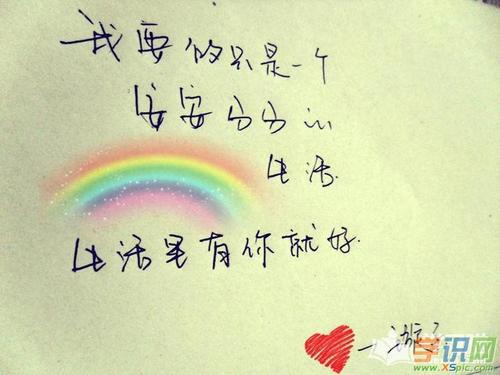 我要的只是一个
安安
生活.
生活里有你就好.
学识网
www.XSpic.com